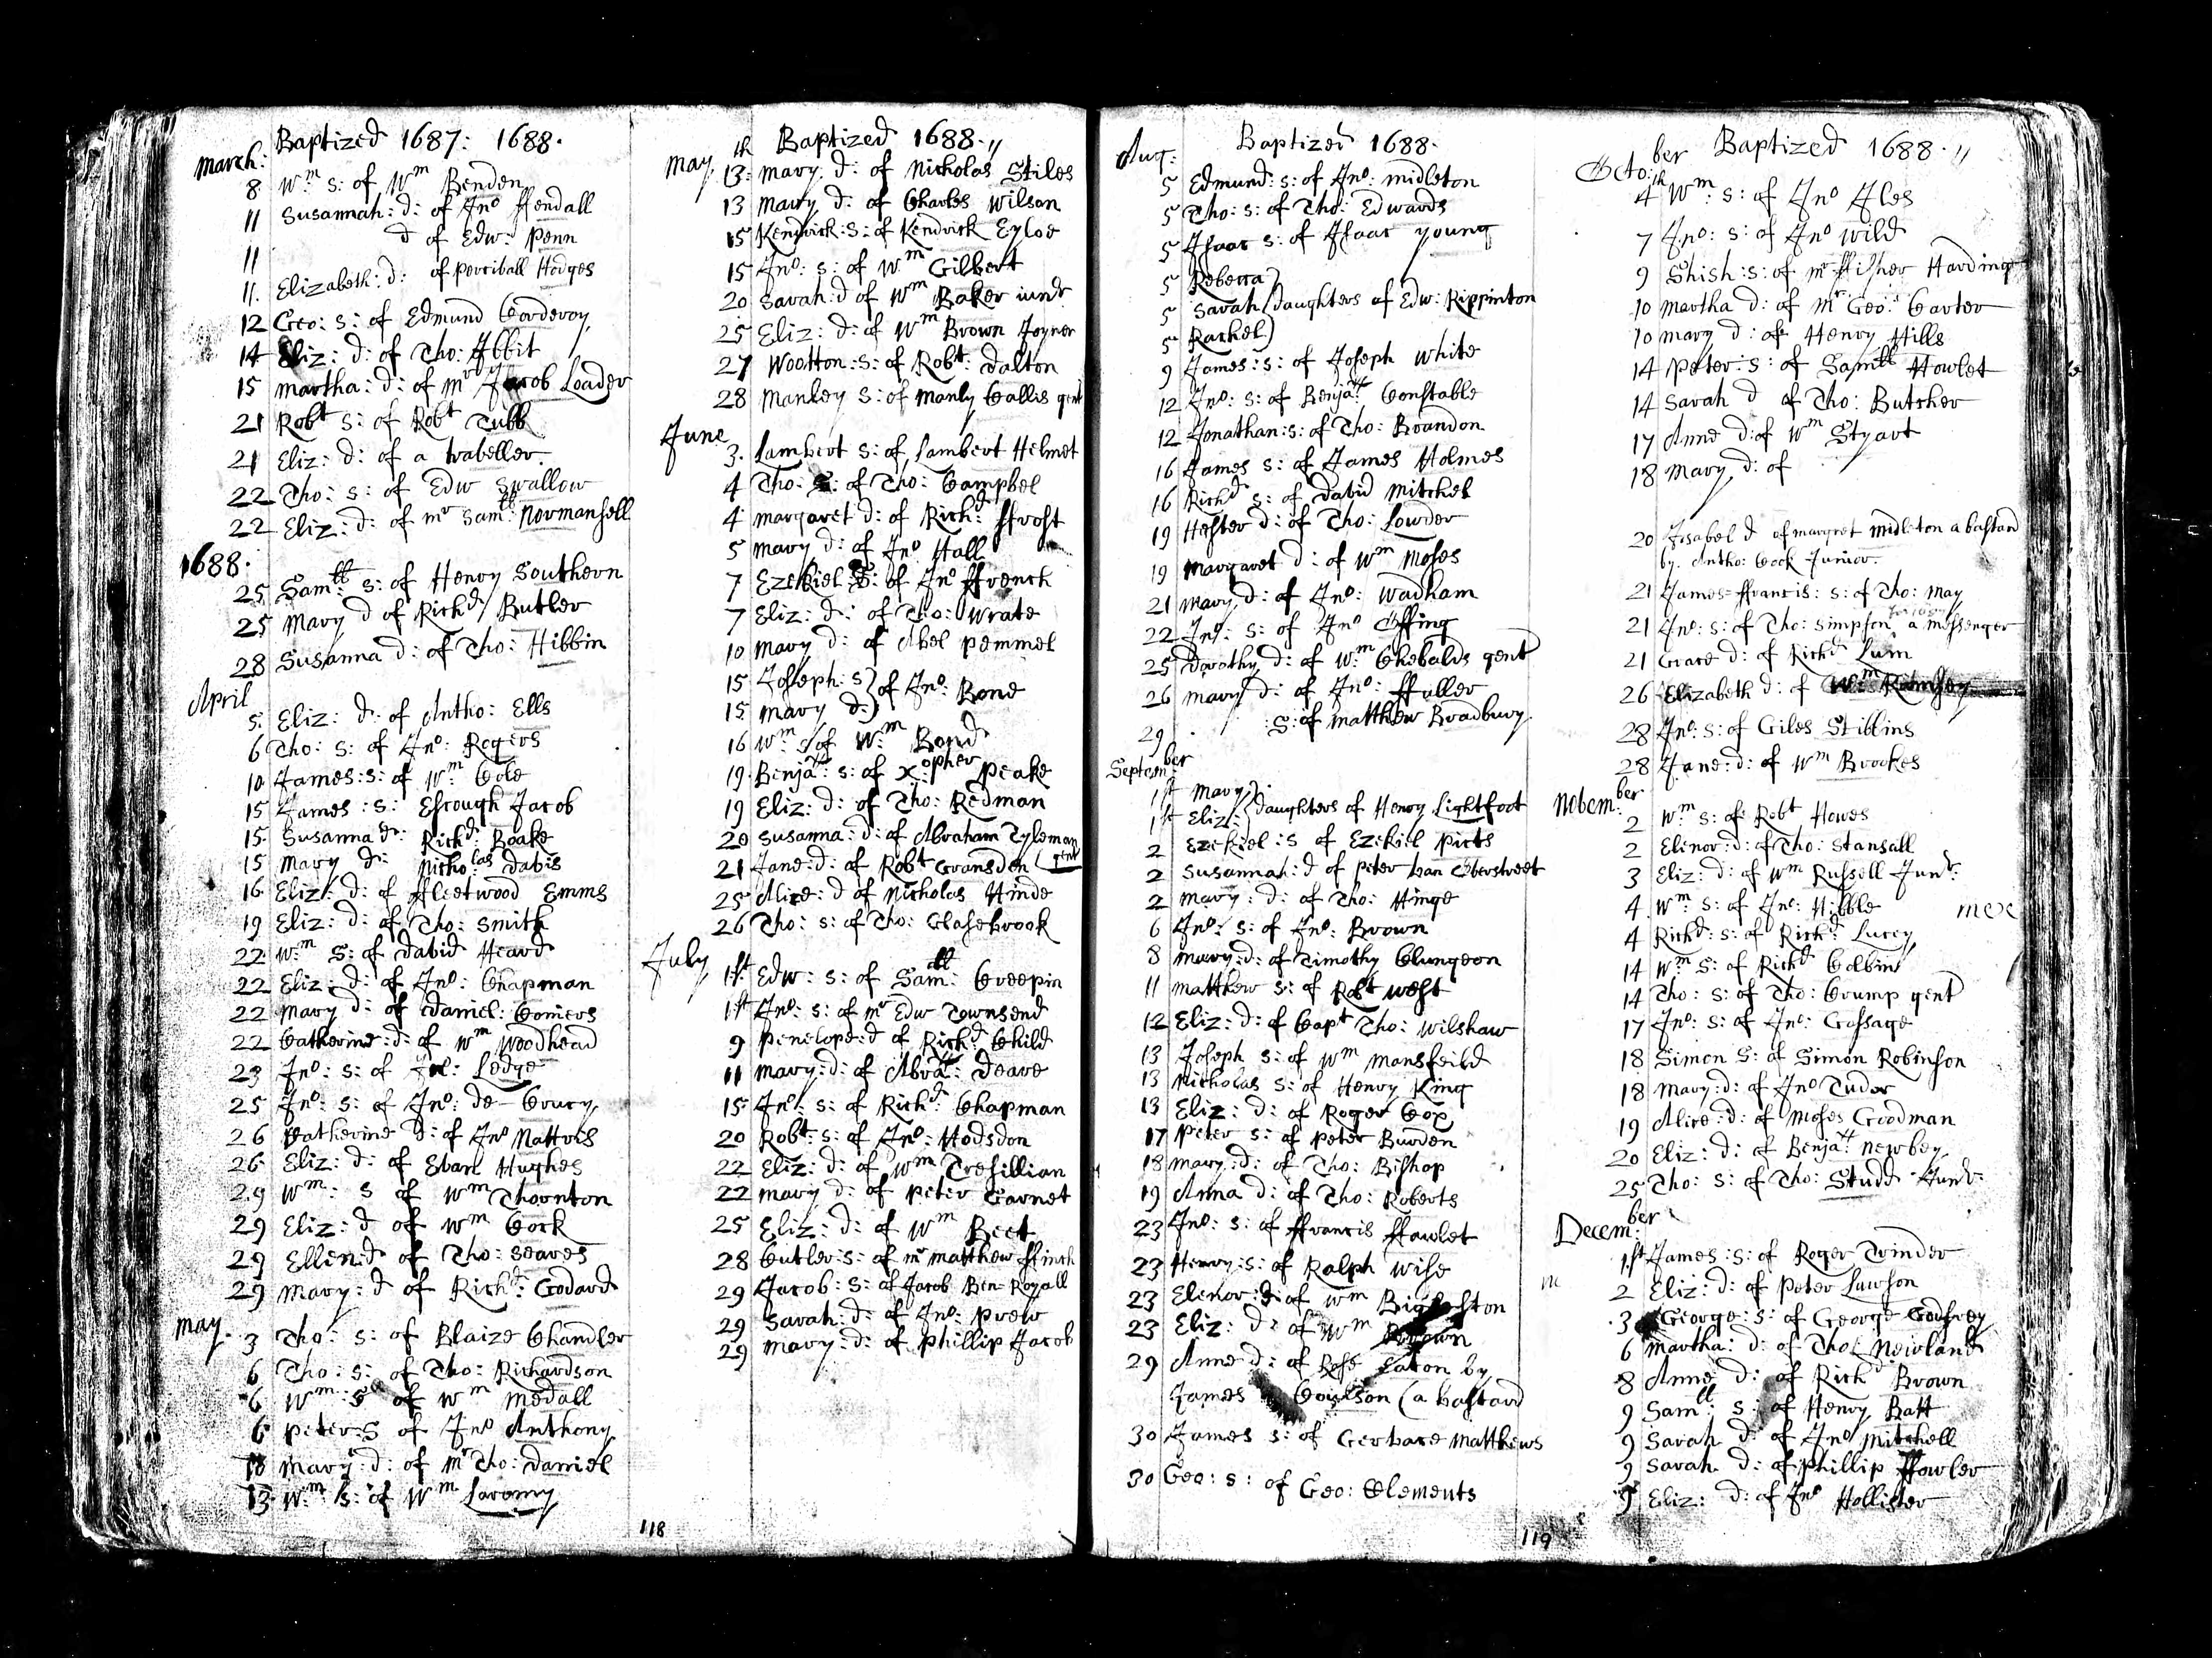 Baptized 1687: 1688.
March:
8 Wm s: of Wm Benden
11 Susannah: d: of Jno Kendall
11 d of Edw: Penn
11. Elizabeth: d: of Perciball Hodges
12 Geo: s: of Edmund Corderoy
14 Eliz: d: of Tho: Abbit
15 Martha: d: of Mr Jacob Loader
21 Robt s: of Robt Tubb
21 Eliz: d: of a traveller.
22 Tho: s: of Edw Swallow
22 Eliz: d: of Mr Samll: Normansell
1688.
25 Samll: s: of Henry Southern
25 Mary d of Richd Butler
28 Susanna d: of Tho: Hibbin
April
5: Eliz: d: of Antho: Ells
6 Tho: s: of Jno: Rogers
10 James: s: of Wm: Cole
15 James: s: Escrough Jacob
15 Susanna d: Richd: Boake
15 Mary d: Nicholas Davis
16 Eliz: d: of Fleetwood Emms
19 Eliz: d: of Tho: Smith
22 Wm s: of David Heard
22 Eliz: d: of Jno: Chapman
22 Mary d: of Daniel: Coniers
22 Catherine: d: of Wm Woodhead
23 Jno: s: of Ledge
25 Jno: s: of Jno: de-Coucy
26 Catherine d: of Jno Mattris
26 Eliz: d: of Evan Hughes
29 Wm: s of Wm Thornton
29 Eliz: d of Wm Cock
29 Ellen: d of Tho: Seares
29 Mary: d of Richd: Godard
May.
3 Tho: s: of Blaize Chandler
6 Tho: s: of Tho: Richardson
6 Wm: s of Wm Medall
6 Peter: s of Jno Anthony
10 Mary: d: of Mr Tho: Daniel
13. Wm: s: of Wm Laramy
118
Baptized 1688.
May
13:th Mary: d: of Nicholas Stiles
13 Mary d: of Charles Wilson
15 Kendrick: s: of Kendrick Eyloe
15 Jno: s: of Wm Gilbert
20 Sarah: d of Wm Baker iunr
25 Eliz: d: of Wm Brown Joyner
27 Wootton: s: of Robt: Dalton
28 Manley s: of Manly Callis gent
June
3. Lambert s: of Lambert Helmet
4 Tho: s: of Tho: Campbel
4 Margaret d: of Richd: ffrost
5 Mary d: of Jno Hall
7 Ezekiel s: of Jno ffrench
7 Eliz: d: of Tho: Wrate
10 Mary d: of Abel Pemmel
15 Joseph: s } of Jno: Bone
15 Mary d: }
16 Wm s of Wm Bond
19 Benja: s: of Xopher Peake
19 Eliz: d: of Tho: Redman
20 Susanna: d: of Abraham Tyleman
21 Jane: d: of Robt Gransden (gent
25 Alice: d of Nicholas Hinde
26 Tho: s: of Tho: Glasebrook
July
1st Edw: s: of Samll: Creepin
1st Jno: s: of Mr Edw Townsend
9 Penelope: d of Richd: Child
11 Mary: d: of Abra: Deare
15 Jno: s: of Richd: Chapman
20 Robt: s: of Jno: Hodsdon
22 Eliz: d: of Wm Tresillian
22 Mary d: of Peter Garnet
25 Eliz: d: of Wm Beet
28 Cutler: s: of Mr Matthew ffinch
29 Jacob: s: of Jacob Ben-Royall
29 Sarah: d: of Jno: Prew
29 Mary: d: of Phillip Jacob
Baptized 1688.
Aug:
5 Edmund: s: of Jno: Midleton
5 Tho: s: of Tho: Edwards
5 Isaac s: of Isaac Young
5 Rebecca }
5 Sarah } daughters of Edw: Rippinton
5 Rachel }
9 James: s: of Joseph White
12 Jno: s: of Benja: Constable
12 Jonathan: s: of Tho: Brandon
16 James s: of James Holmes
16 Richd s: of David Mitchel
19 Hester d: of Tho: Lowder
19 Margaret d: of Wm Moses
21 Mary d: of Jno: Wadham
22 Jno: s: of Jno Offing
25 Dorothy d: of Wm: Chebalds gent
26 Mary d: of Jno: ffuller
29 . :s: of Matthew Bradbury.
September
1st Mary }
1st Eliz: } daughters of Henry Lightfoot
2 Ezekiel: s of Ezekiel Picts
2 Susannah: d of Peter Van Oberstreet
2 Mary: d: of Tho: Hinge
6 Jno: s: of Jno: Brown
8 Mary: d: of Timothy Clungeon
11 Matthew s: of Robt West
12 Eliz: d: of Capt Tho: Wilshaw
13 Joseph s: of Wm Mansfeild
13 Nicholas s: of Henry King
13 Eliz: d: of Roger Cox
17 Peter s: of Peter Burden
18 Mary: d: of Tho: Bishop
19 Anna d: of Tho: Roberts
23 Jno: s: of ffrancis ffawlet
23 Henry: s: of Ralph Wise
23 Elenor: d: of Wm
23 Eliz: d: of Wm Brown
29 Anne d: of Rose Eaton by
James Coulson (a bastard
30 James s: of Gerbase Matthews
30 Geo: s: of Geo: Clements
119
Baptized 1688.
October
4th Wm: s: of Jno Iles
7 Jno: s: of Jno Wild
9 Shish: s: of Mr ffisher Harding
10 Martha d: of Mr Geo: Carter
10 Mary d: of Henry Hills
14 Peter: s: of Samll Howlet
14 Sarah d of Tho: Butcher
17 Anne d: of Wm Styart
18 Mary d: of
20 Issabel d of Margret Midleton a bastard
by. Antho: Cock Junior.
21 James=ffrancis: s: of Tho: May
21 Jno: s: of Tho: Simpson a messenger
21 Grace d: of Richd Lum
26 Elizabeth d: of Wm: Ramsey
28 Jno: s: of Giles Stibbins
28 Jane: d: of Wm Brookes
November
2 Wm: s: of Robt Howes
2 Elenor: d: of Tho: Stansall
3 Eliz: d: of Wm Russell Junr:
4 Wm s: of Jno: Hibble
4 Richd: s: of Richd: Lucey
14 Wm s: of Richd Collins
14 Tho: s: of Tho: Crump gent
17 Jno: s: of Jno: Gossage
18 Simon s: of Simon Robinson
18 Mary: d: of Jno Tudor
19 Alice: d: of Moses Goodman
20 Eliz: d: of Benja: Newbey
25 Tho: s: of Tho: Studd Junr:
December
1st James: s: of Roger Trinder
2 Eliz: d: of Peter Lawson
3 George: s: of George Godfrey
6 Martha: d: of Tho: Newland
8 Anne d: of Richd Brown
9 Samll: s: of Henry Batt
9 Sarah d: of Jno Mitchell
9 Sarah d: of Phillip ffowler
9 Eliz: d: of Jno Hollister